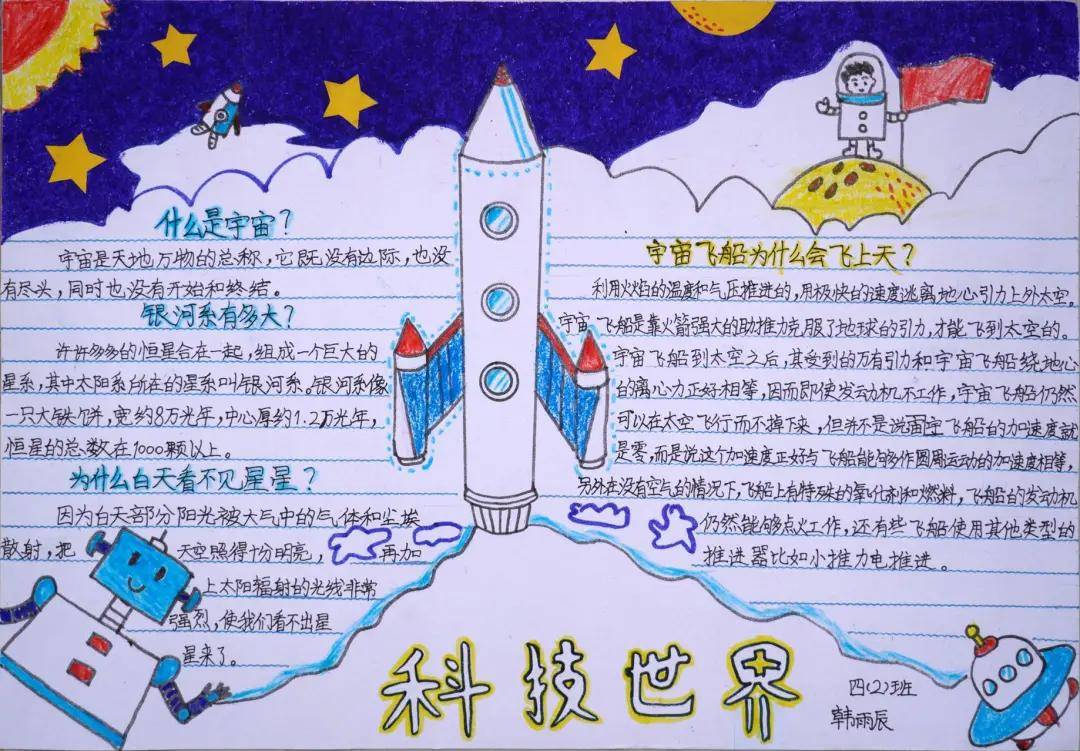 什么是宇宙？
宇宙是天地万物的总称，它既没有边际，也没
有尽头，同时也没有开始和终结。
银河系有多大？
许许多多的恒星合在一起，组成一个巨大的
星系，其中太阳系所在的星系叫银河系。银河系像
一只大铁饼，宽约8万光年，中心厚约1.2万光年，
恒星的总数在1000颗以上。
为什么白天看不见星星？
因为白天部分阳光被大气中的气体和尘埃
散射，把天空照得十分明亮，再加
上太阳辐射的光线非常
强烈，使我们看不出星
星来了。
宇宙飞船为什么会飞上天？
利用火焰的温度和气压推进的，用极快的速度逃离地心引力上外太空。
宇宙飞船是靠火箭强大的助推力克服了地球的引力，才能飞到太空的。
宇宙飞船到太空之后，其受到的万有引力和宇宙飞船绕地心
的离心力正好相等，因而即使发动机不工作，宇宙飞船仍然
可以在太空飞行而不掉下来，但并不是说固宇飞船的加速度就
是零，而是说这个加速度正好与飞船能够作圆周运动的加速度相等，
另外在没有空气的情况下，飞船上有特殊的氧化剂和燃料，飞船的发动机
仍然能够点火工作，还有些飞船使用其他类型的
推进器比如小推力电推进。
科技世界
四(2)班
韩雨辰